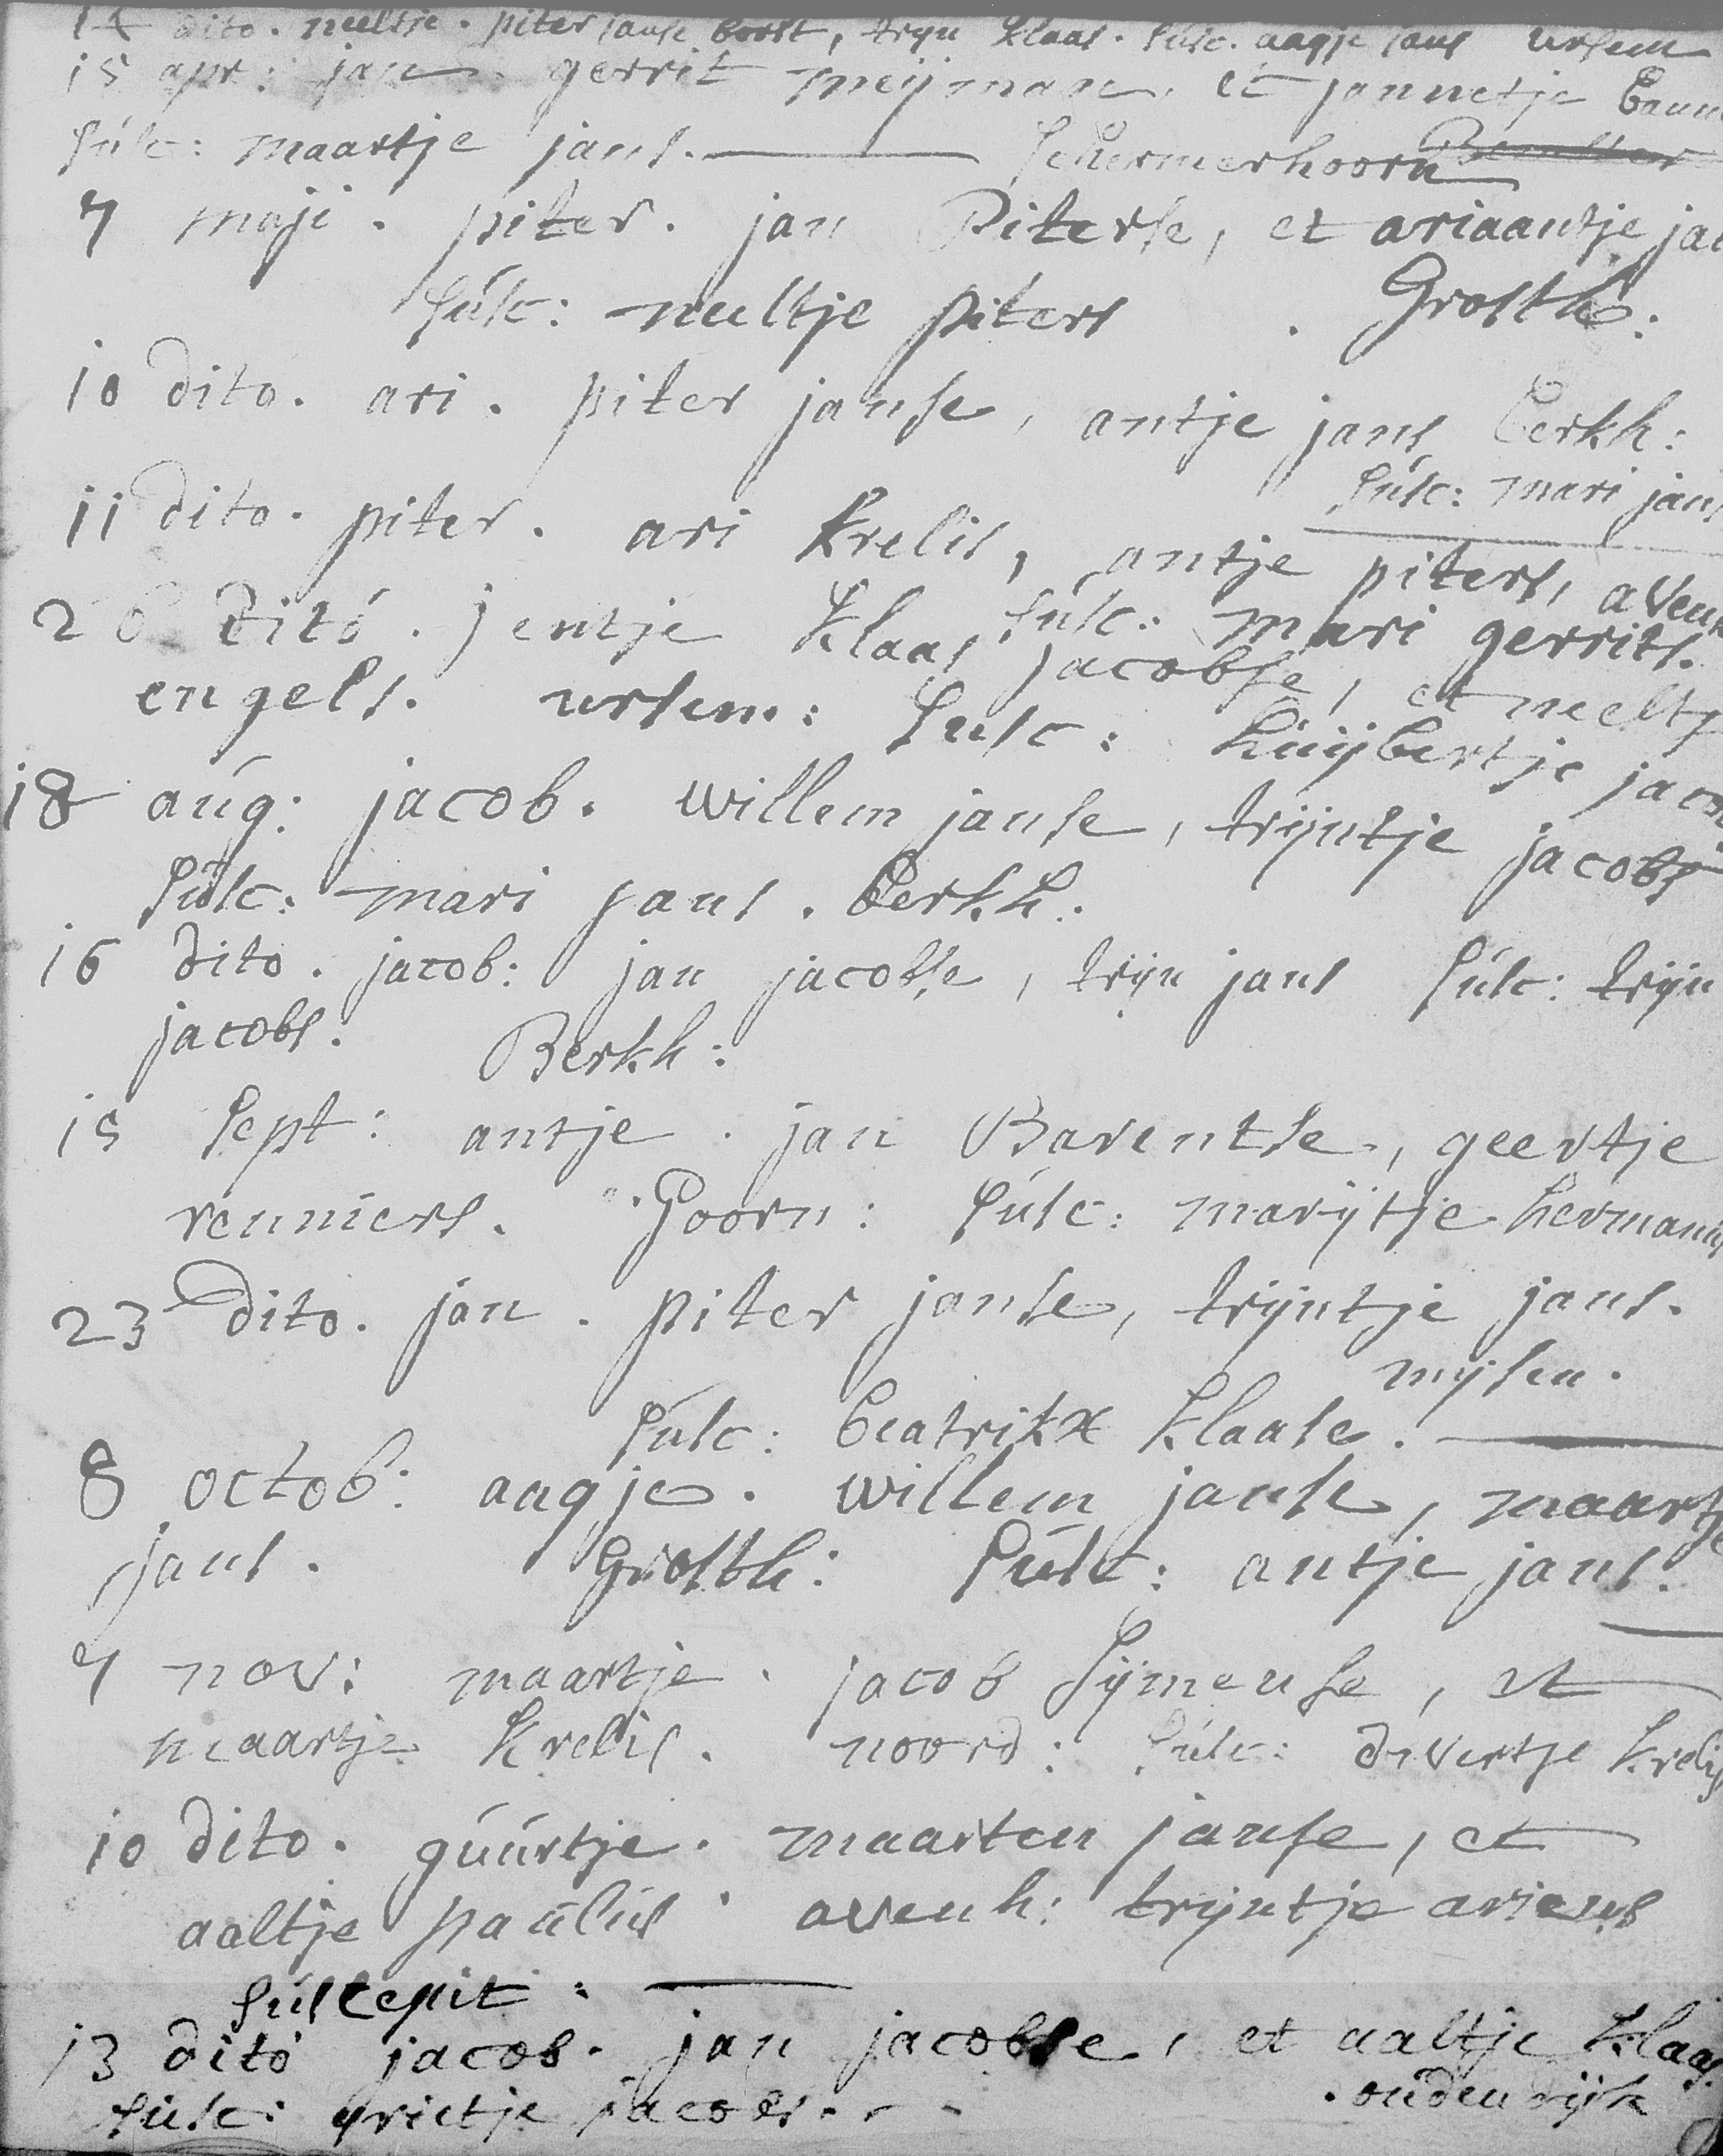 14 dito. neeltje. piter janse borst, tryn klaas. susc. aagje jans ursem
15 apr: jan gerrit meijman, et jannetje
susc: maartje jans. schermerhoorn Beemster
7 maji. piter. jan Piterse, et ariaantje jan
susc: neeltje piters. Grosth:
10 dito. ari. piter janse, antje jans berkh:
susc: mari jans
11 dito. piter. ari krelis, antje piters, avenh
susc: mari gerrits.
20 dito. jentje klaas jacobse, et neeltje
engels. ursem: susc: huijbertje jacobs
18 aug: jacob. willem janse, trijntje jacobs
susc: mari jans. berkh:
16 dito. jacob: jan jacobse, trijn jans susc: trijn
jacobs. Berkh:
15 sept: antje. jan Barentse, geertje
renniers. Goorn: susc: marijtje hermanus
23 dito. jan. piter janse, trijntje jans.
mijsen.
susc: beatrikx klaase.
8 octob: aagje. willem janse, maartje
jans. Grosth: susc: antje jans.
7 nov: maartje. jacob sijmense, et
maartje krelis. noord: susc: divertje krelis
10 dito. guurtje. maarten janse, et
aaltje paulus. avenh: trijntje ariens
suscepit:
13 dito jacob. jan jacobse, et aaltje klaas
susc: grietje jacobs. oudendijk